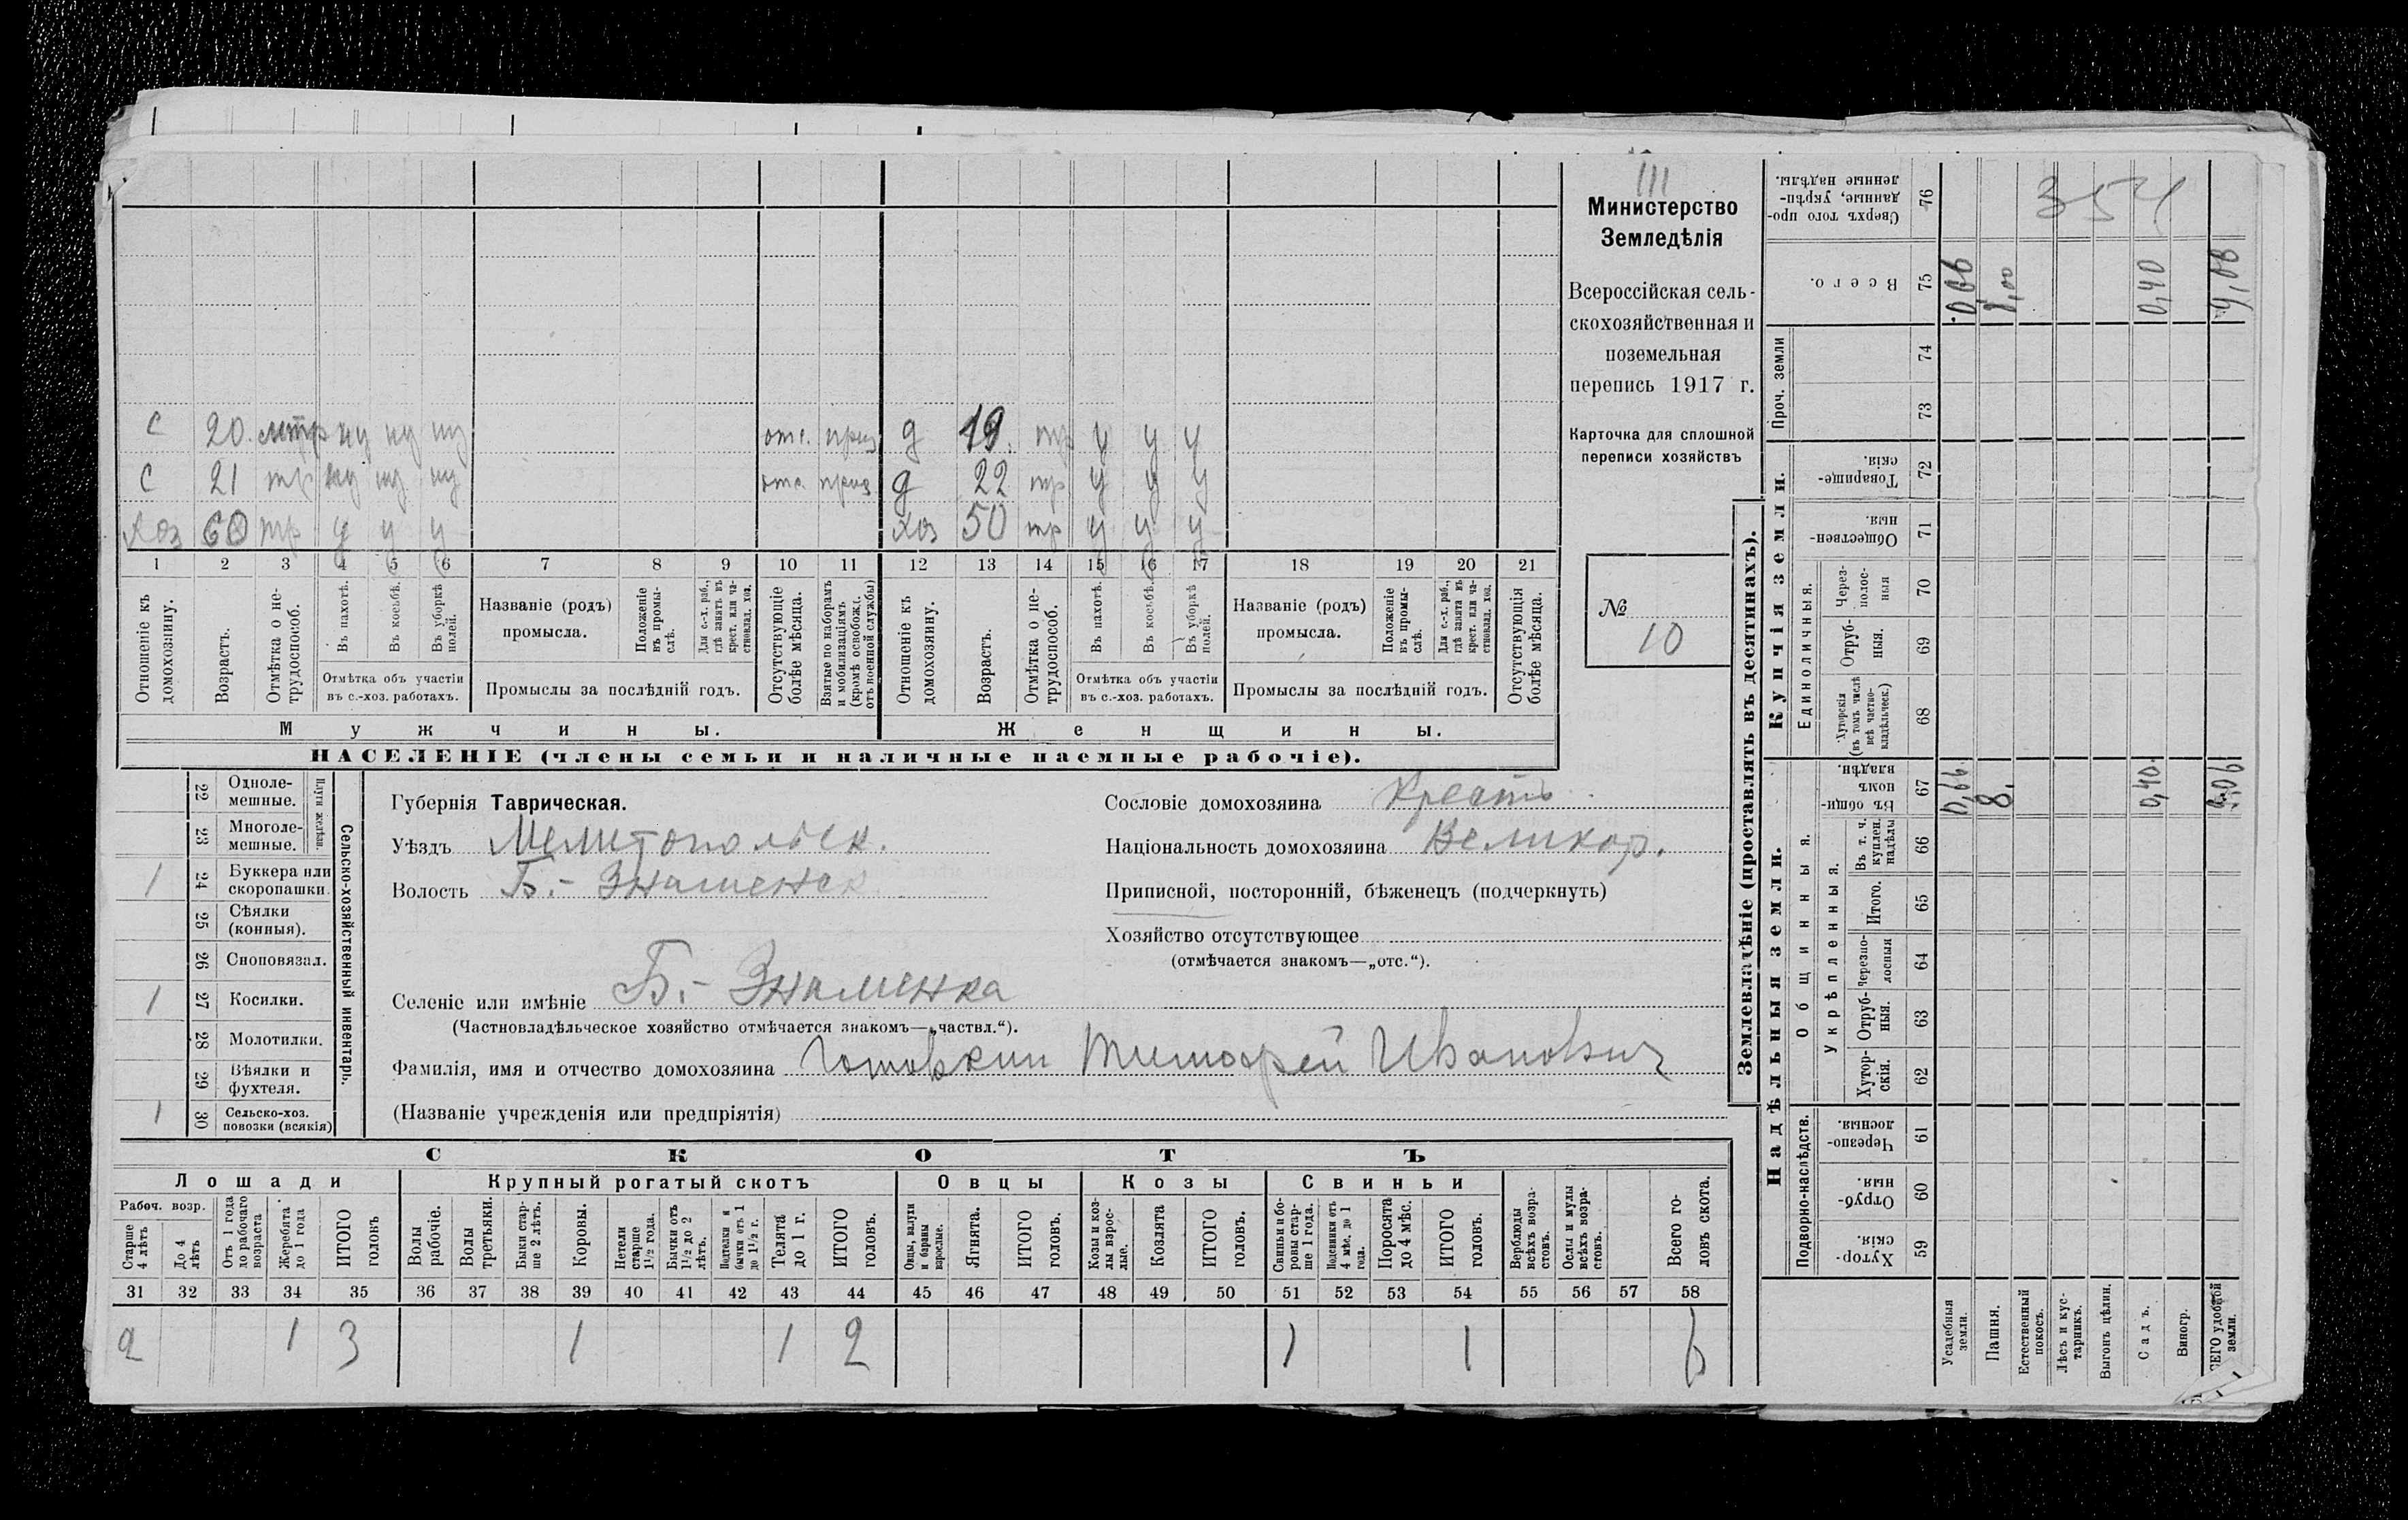 III
Министерство
Земледѣлія
Всероссійская сель-
скохозяйственная и
поземельная
перепись 1917 г.
Карточка для сплошной
переписи хозяйствъ
№ 10
С 20. нтр ну ну ну отс. приз д 19. тр у у у
С 21 тр ну ну ну отс. приз д 22 тр у у у
Хоз 60 тр у у у хоз 50 тр у у у
1 2 3 4 5 6 7 8 9 10 11 12 13 14 15 16 17 18 19 20 21
Отношеніе къ домохозяину.
Возрастъ.
Отмѣтка о не-трудоспособ.
Въ пахотѣ.
Въ косьбѣ.
Въ уборкѣ полей.
Отмѣтка объ участіи
въ с.-хоз. работахъ.
Названіе (родъ)
промысла.
Положеніе въ промы-слѣ.
Для с.-х. раб., гдѣ занятъ въ крест. или ча-стновлад. хоз.
Промыслы за послѣдній годъ.
Отсутствующіе болѣе мѣсяца.
Взятые по наборамъ и мобилизаціямъ (кромѣ освобожд. отъ военной службы)
Отношеніе къ домохозяину.
Возрастъ.
Отмѣтка о не-трудоспособ.
Въ пахотѣ.
Въ косьбѣ.
Въ уборкѣ полей.
Отмѣтка объ участіи
въ с.-хоз. работахъ.
Названіе (родъ)
промысла.
Положеніе въ промы-слѣ.
Для с.-х. раб., гдѣ занята въ крест. или ча-стновлад. хоз.
Промыслы за послѣдній годъ.
Отсутствующія болѣе мѣсяца.
Мужчины. Женщины.
НАСЕЛЕНІЕ (члены семьи и наличные наемные рабочіе).
Сельско-хозяйственный инвентарь.
Плуги желѣзн.
22 Одноле-мешные.
23 Многоле-мешные.
1 24 Буккера или скоропашки.
25 Сѣялки (конныя).
26 Сноповязал.
1 27 Косилки.
28 Молотилки.
29 Вѣялки и фухтеля.
1 30 Сельско-хоз. повозки (всякія)
Губернія Таврическая.
Уѣздъ Мелитопольск.
Волость Б.- Знаменск
Селеніе или имѣніе Б.- Знаменка
(Частновладѣльческое хозяйство отмѣчается знакомъ—„частвл.“).
Фамилія, имя и отчество домохозяина Готовкин Тимофей Иванович
(Названіе учрежденія или предпріятія)
Сословіе домохозяина Крест
Національность домохозяина Великор.
Приписной, посторонній, бѣженецъ (подчеркнуть)
Хозяйство отсутствующее
(отмѣчается знакомъ—„отс.“).
СКОТЪ
Лошади Крупный рогатый скотъ Овцы Козы Свиньи
Рабоч. возр.
Старше 4 лѣтъ
До 4 лѣтъ
Отъ 1 года до рабочаго возраста
Жеребята до 1 года
ИТОГО головъ
Волы рабочіе.
Волы третьяки.
Быки стар-ше 2 лѣтъ.
Коровы.
Нетели старше 1½ года.
Бычки отъ 1½ до 2 лѣтъ.
Подтелки и бычки отъ 1 до 1½ г.
Телята до 1 г.
ИТОГО головъ.
Овцы, валухи и бараны взрослые.
Ягнята.
ИТОГО головъ.
Козы и коз-лы взрос-лые.
Козлята
ИТОГО головъ.
Свиньи и бо-ровы стар-ше 1 года.
Подсвинки отъ 4 мѣс. до 1 года.
Поросята до 4 мѣс.
ИТОГО головъ.
Верблюды всѣхъ возра-стовъ.
Ослы и мулы всѣхъ возра-стовъ.
Всего го-ловъ скота.
31 32 33 34 35 36 37 38 39 40 41 42 43 44 45 46 47 48 49 50 51 52 53 54 55 56 57 58
2 1 3 1 1 2 1 1 6
Землевладѣніе (проставлять въ десятинахъ).
Надѣльныя земли. Купчія земли. Проч. земли
Подворно-наслѣдств.
Общинныя.
Укрѣпленныя.
Единоличныя.
59 Хутор-скія.
60 Отруб-ныя.
61 Черезпо-лосныя.
62 Хутор-скія.
63 Отруб-ныя.
64 Черезпо-лосныя
65 Итого.
66 Въ т. ч. куплен. надѣлы
67 Въ общин-номъ владѣн.
68 Хуторскія (въ томъ числѣ всѣ частно-владѣльческ.)
69 Отруб-ныя.
70 Через-полос-ныя
71 Обществен-ныя.
72 Товарище-скія.
73
74
75 Всего.
76 Сверхъ того про-данные, укрѣп-ленные надѣлы.
Усадебныя земли. 0,66 0,66
Пашня. 8. 8,00
Естественный покосъ.
Лѣсъ и кус-тарникъ.
Выгонъ цѣлин.
Садъ. 0,40 0,40
Виногр.
ВСЕГО удобной земли. 9,06
354